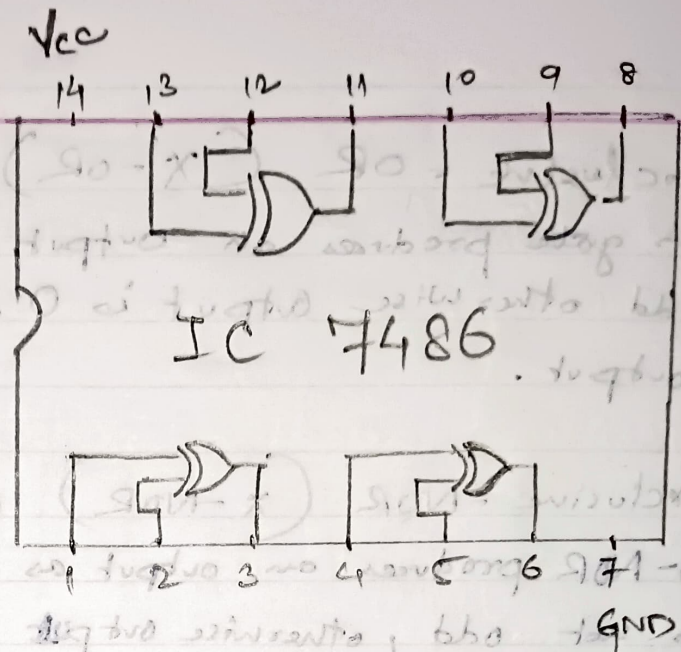 Vcc
14 13 12 11 10 9 8
IC 7486
1 2 3 4 5 6 7
GND